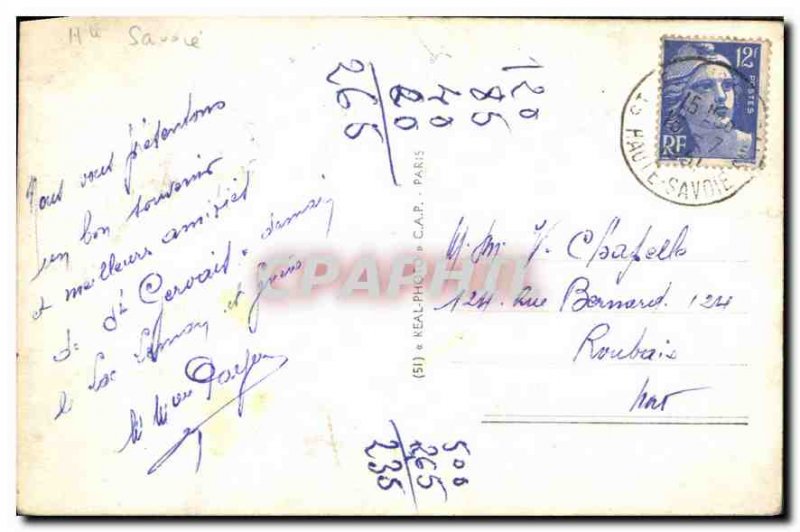 Hte Savoie
120
85
40
20
265
Nous vous présentons
un bon souvenir
et meilleurs amitiés
de St Gervais demain
le Lac Léman et
M. Mme
M. M. V. Chapelle
124 Rue Bernard 124
Roubaix
Nord
500
265
235
12F
POSTES
RF
HAUTE-SAVOIE
(51) « REAL-PHOTO » C.A.P. - PARIS
CPARHIL